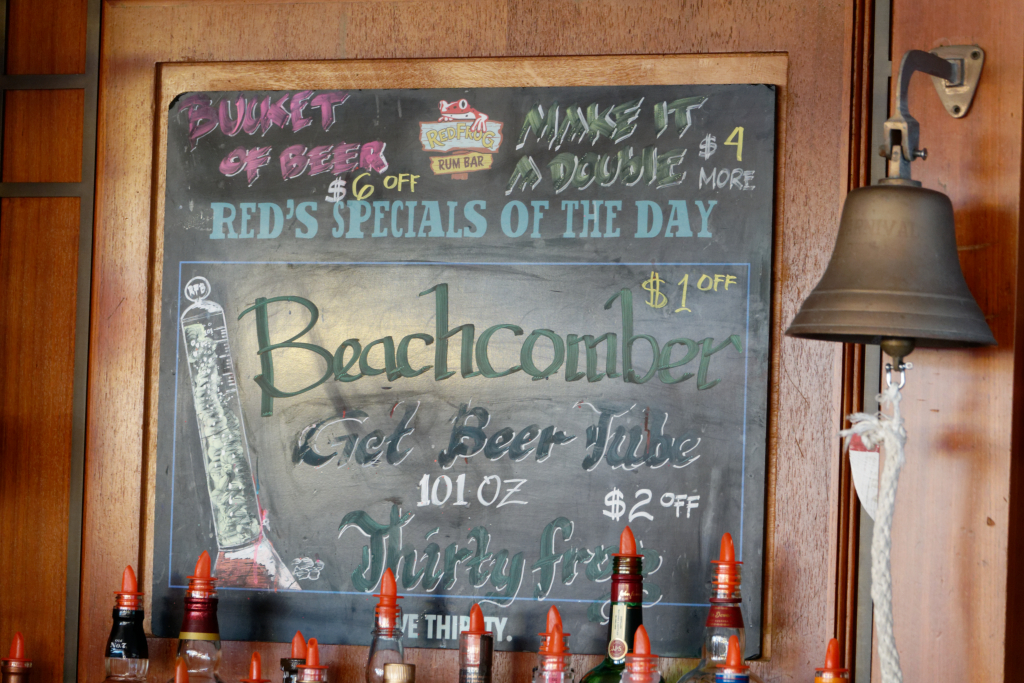 BUCKET
OF BEER
$6 OFF
REDFROG
RUM BAR
MAKE IT
A DOUBLE
$4
MORE
RED'S SPECIALS OF THE DAY
RFB
$1 OFF
Beachcomber
Get Beer Tube
101 OZ
$2 OFF
Thirty frog
VE THIRSTY.
No.7